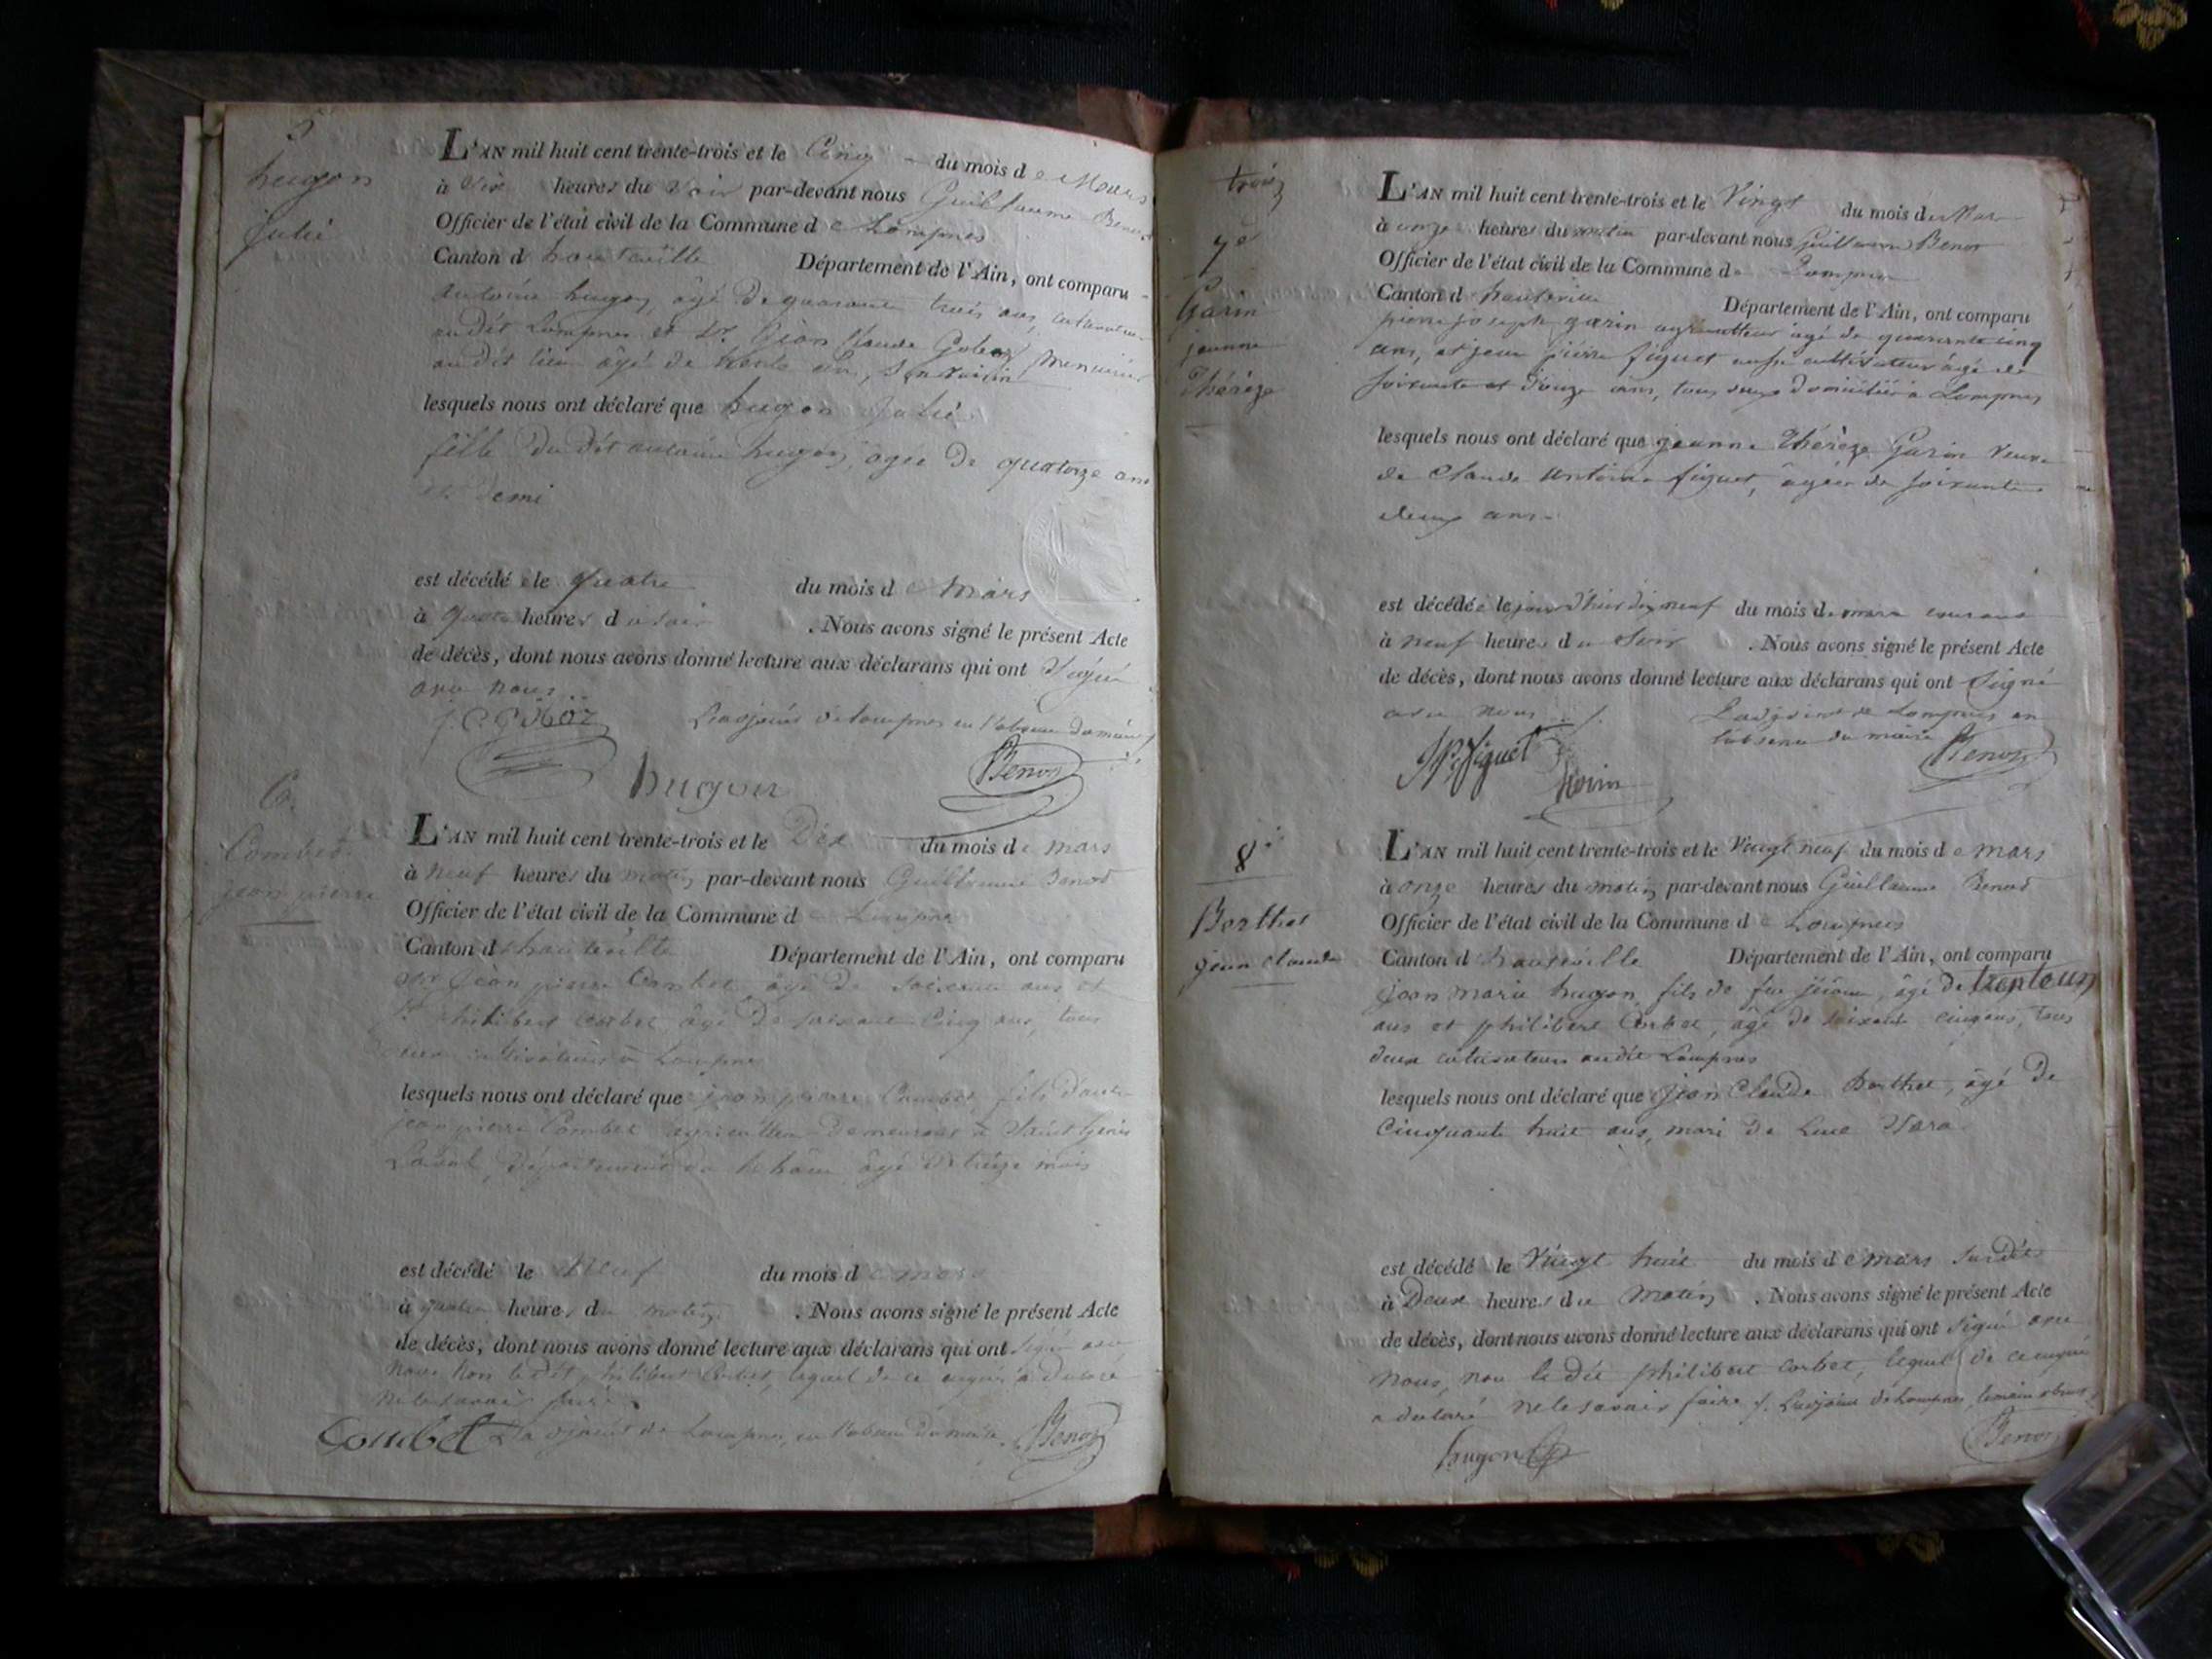 5
hugon
Julie
L'AN mil huit cent trente-trois et le Cinq du mois de Mars
à Six heures du Soir par-devant nous Guillaume Benod
Officier de l'état civil de la Commune de Lompnes
Canton d'hauteville Département de l'Ain, ont comparu
antoine hugon, âgé de quarante trois ans, cultivateur
audit Lompnes et Sr. Jean Claude menuisier
audit lieu âgé de trente ans, Son voisin
lesquels nous ont déclaré que hugon Julie
fille du dit antoine hugon, agée de quatorze ans
et demi
est décédé e le quatre du mois de Mars
à quatre heures du soir . Nous avons signé le présent Acte
de décès, dont nous avons donné lecture aux déclarans qui ont Signé
avec nous
L'adjoint de Lompnes en l'absence du maire
hugon Benod
6
Combet
jean pierre
L'AN mil huit cent trente-trois et le Dix du mois de mars
à Neuf heures du matin par-devant nous Guillaume Benod
Officier de l'état civil de la Commune de Lompnes
Canton d'hauteville Département de l'Ain, ont comparu
Sr Jean pierre Combet âgé de soixante ans et
Sr philibert Corbet âgé de soixante Cinq ans, tous
deux cultivateurs à Lompnes
lesquels nous ont déclaré que jean pierre Combet, fils d'autre
jean pierre Combet agriculteur demeurant à Saint Genis
Laval, Département du Rhône âgé de treize mois
est décédé le Neuf du mois de mars
à quatre heures du matin . Nous avons signé le présent Acte
de décès, dont nous avons donné lecture aux déclarans qui ont signé avec
nous non le dit philibert Corbet, lequel de ce enquis a déclaré
ne le savoir faire.
Combet L'adjoint de Lompnes, en l'absence du maire. Benod
7e
Garin
jeanne
Thérèze
L'AN mil huit cent trente-trois et le Vingt du mois de Mars
à onze heures du matin par-devant nous Guillaume Benod
Officier de l'état civil de la Commune de Lompnes
Canton d'hauteville Département de l'Ain, ont comparu
pierre joseph garin agriculteur âgé de quarante cinq
ans, et jean pierre figuet aussi cultivateur âgé de
soixante et douze ans, tous deux domiciliés à Lompnes
lesquels nous ont déclaré que jeanne Thérèze Garin veuve
de Claude Antoine figuet, âgée de soixante
deux ans.
est décédée le jour d'hier dix neuf du mois de mars courant
à neuf heures du Soir . Nous avons signé le présent Acte
de décès, dont nous avons donné lecture aux déclarans qui ont Signé
avec nous L'adjoint de Lompnes en
l'absence du maire
JP figuet Benod
8e
Borthet
jean claude
L'AN mil huit cent trente-trois et le Vingt neuf du mois de mars
à onze heures du matin par-devant nous Guillaume Benod
Officier de l'état civil de la Commune de Lompnes
Canton d'hauteville Département de l'Ain, ont comparu
jean marie hugon, fils de feu jérôme, âgé de trenteun
ans et philibert Corbet, âgé de soixante cinq ans, tous
deux cultivateurs audit Lompnes
lesquels nous ont déclaré que jean Claude Borthet, âgé de
Cinquante huit ans, mari de
est décédé le Vingt huit du mois de mars susdit
à Deux heures du Matin . Nous avons signé le présent Acte
de décès, dont nous avons donné lecture aux déclarans qui ont signé avec
nous, non le dit philibert Corbet, lequel de ce enquis
a déclaré ne le savoir faire L'adjoint de Lompnes, le maire absent
hugon Benod